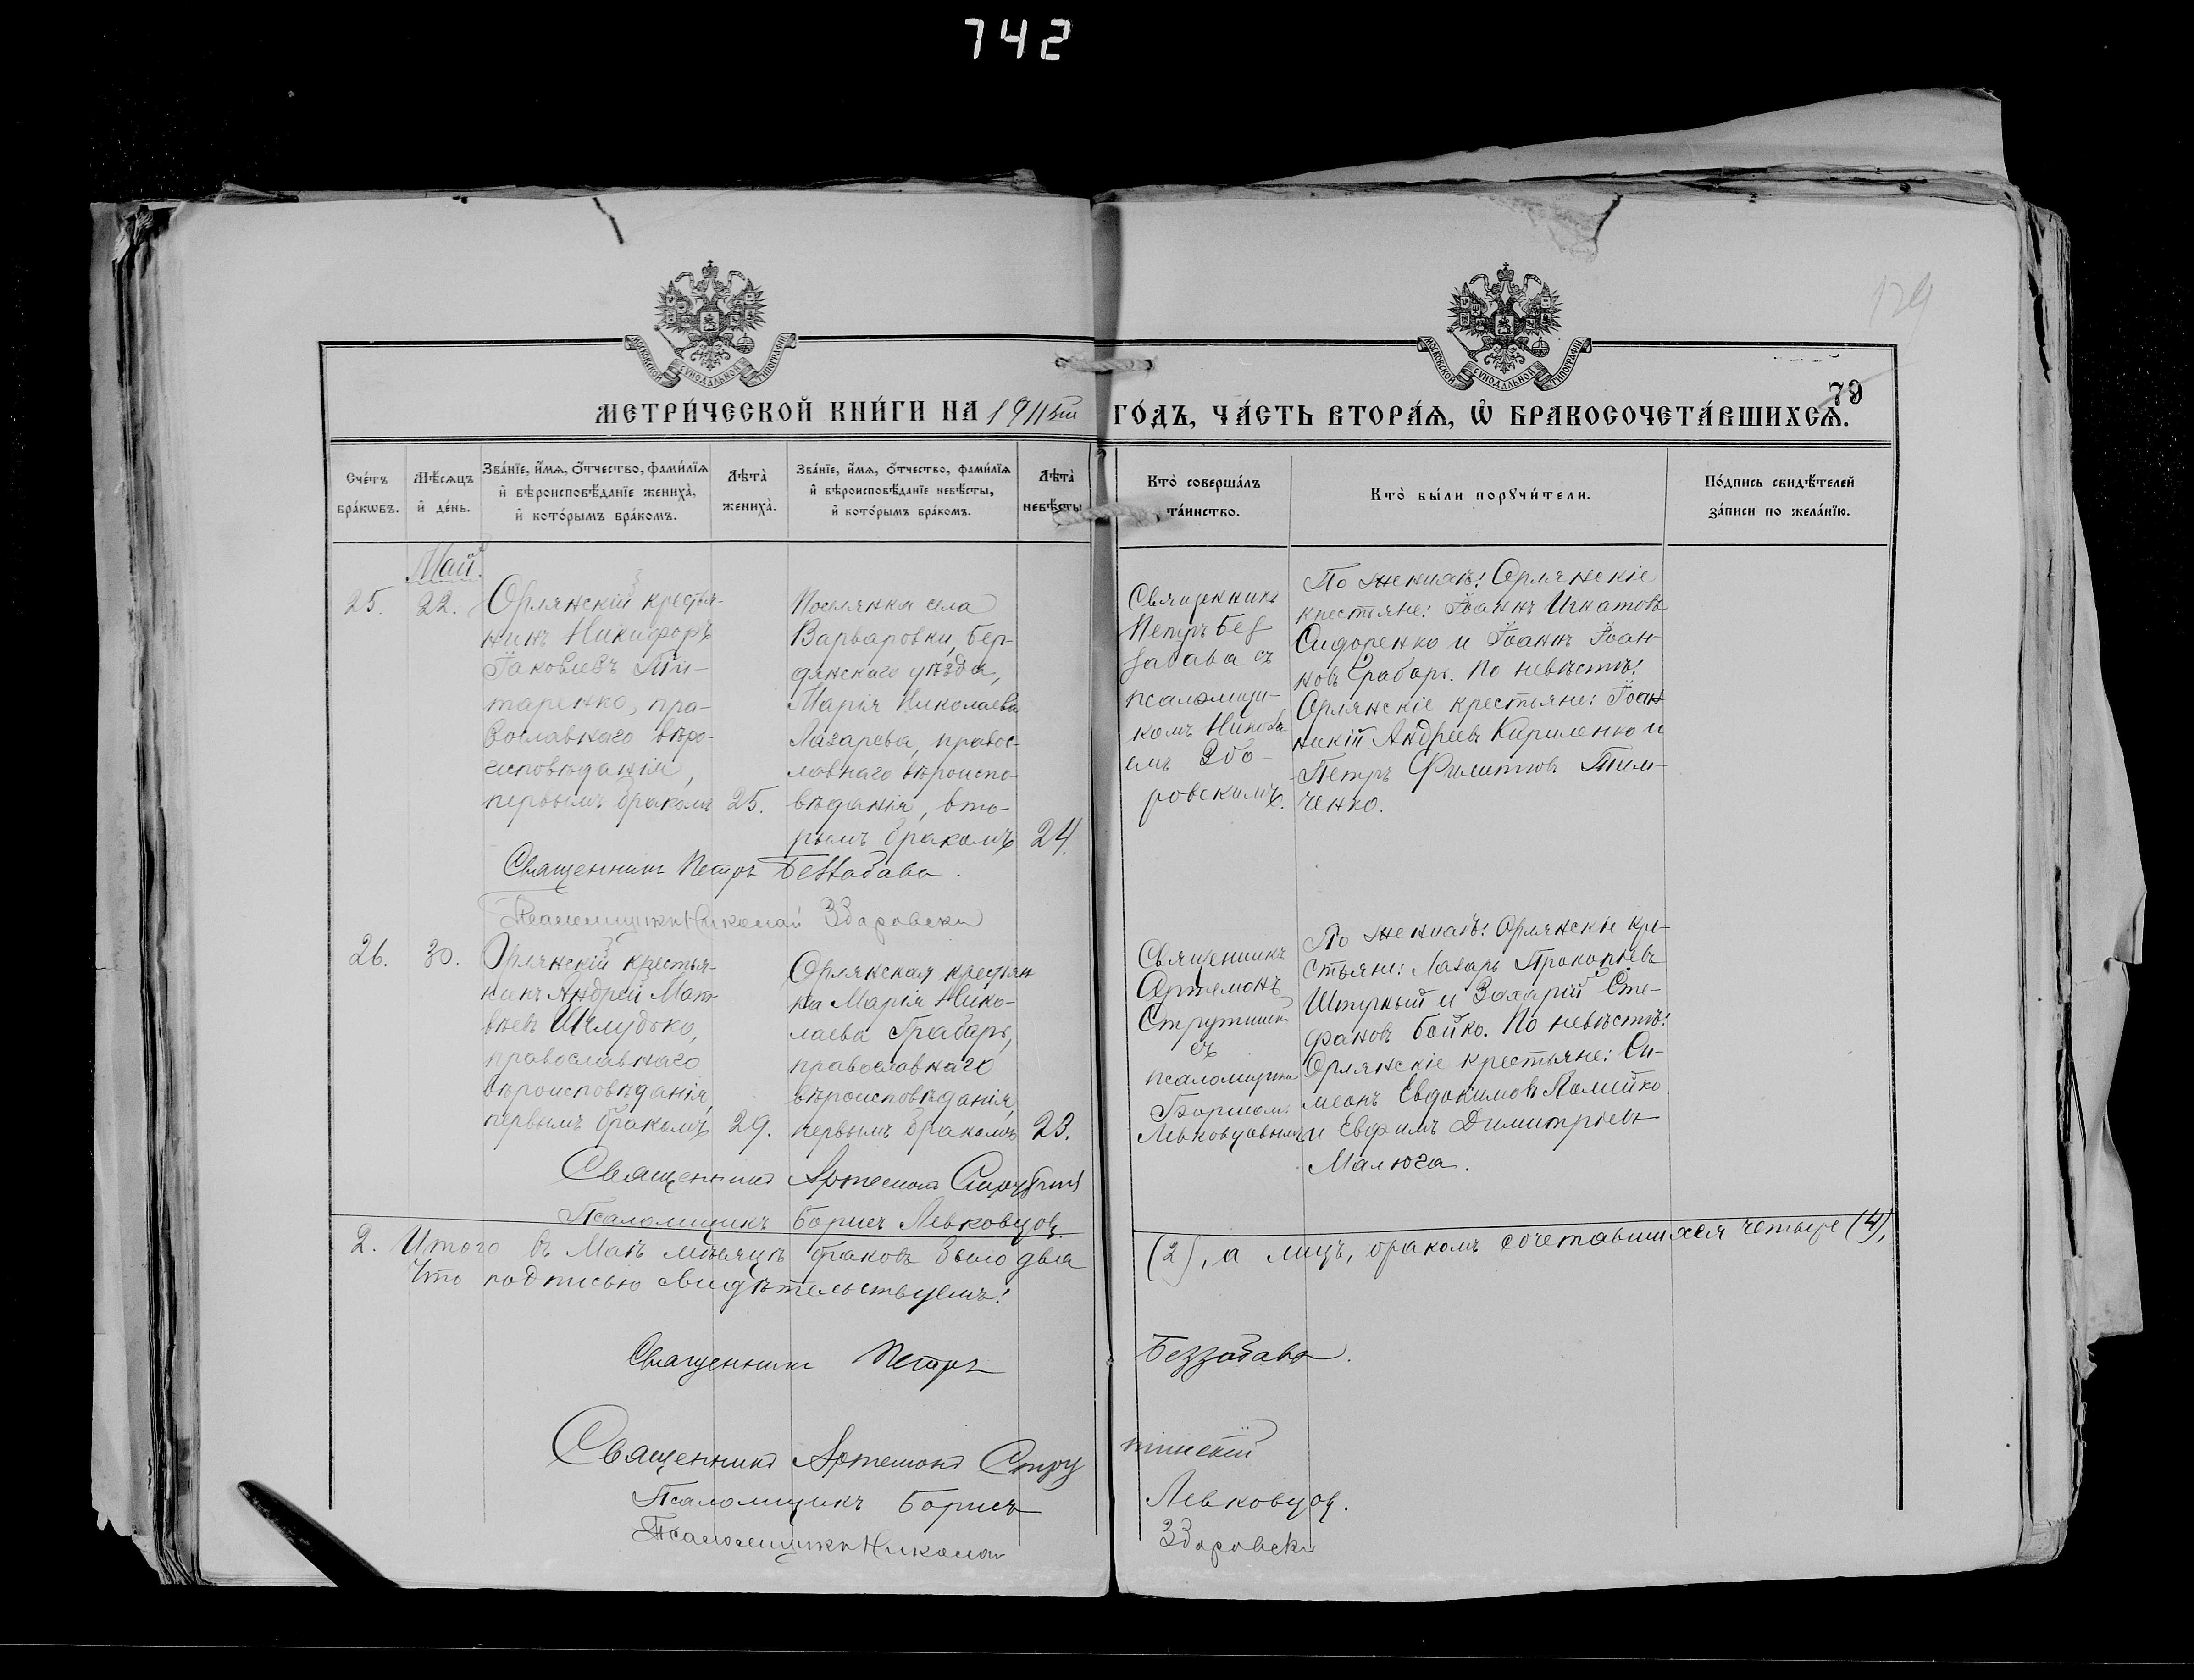 742
129
МОСКОВСКОЙ СѴНОДАЛЬНОЙ ТИПОГРАФІИ
МОСКОВСКОЙ СѴНОДАЛЬНОЙ ТИПОГРАФІИ
79
МЕТРИ́ЧЕСКОЙ КНИ́ГИ НА 1911 ГО́ДЪ, ЧА́СТЬ ВТОРА́Ѧ, Ѡ҆ БРАКОСОЧЕТА́ВШИХСѦ.
Сче́тъ
бра́кѡвъ.
Мѣ́сѧцъ
и҆ де́нь.
Зва́нїе, и҆́мѧ, ѻ҆́тчество, фами́лїѧ
и҆ вѣроисповѣ́данїе жениха̀,
и҆ кото́рымъ бра́комъ.
Лѣта̀
жениха̀.
Зва́нїе, и҆́мѧ, ѻ҆́тчество, фами́лїѧ
и҆ вѣроисповѣ́данїе невѣ́сты,
и҆ кото́рымъ бра́комъ.
Лѣта̀
невѣ́сты
Кто̀ соверша́лъ
та́инство.
Кто̀ бы́ли порꙋчи́тели.
По́дпись свидѣ́телей
за́писи по жела́нїю.
Май.
25.
22.
Орлянскій крестья-
нинъ Никифоръ
Іаковлевъ Ти-
таренко, пра-
вославнаго вѣро-
исповѣданія,
первымъ бракомъ
25.
Поселянка села
Варваровки, бер-
дянскаго уѣзда,
Марія Николаева
Лазарева, правос-
лавнаго вѣроиспо-
вѣданія, вто-
рымъ бракомъ
24.
Священникъ
Петръ Без
забава съ
псаломщи-
комъ Никола
емъ Збо-
ровскимъ.
По женихѣ: Орлянскіе
крестьяне: Іоаннъ Игнатовъ
Сидоренко и Іоаннъ Іоан-
новъ Грабарь. По невѣстѣ:
Орлянскіе крестьяне: Іоан
никій Андреевъ Кириленко и
Петръ Филиппов Тим-
ченко.
Священникъ Петръ Беззабава.
Псаломщикъ Николай Здоровски
26.
30.
Орлянскій крестья-
нинъ Андрей Мат-
вѣевъ
православнаго
вѣроисповѣданія,
первымъ бракомъ
29.
Орлянская крестьян
ка Марія Нико-
лаева Грабарь,
православнаго
вѣроисповѣданія,
первымъ бракомъ
23.
Священникъ
Артемонъ
съ
псаломщик
Борисом
Левковцовымъ
По женихѣ: Орлянскіе кре-
стьяне: Лазарь Прокопьевъ
Штурный и Захарій Сте-
фановъ Бойко. По невѣстѣ:
Орлянскіе крестьяне: Си-
меонъ Евдокимовъ Ломейко
и Евфимъ Димитріевъ
Малюга.
Священникъ Артемонъ
Псаломщикъ Борисъ Левковцов.
2. Итого въ Маѣ мѣсяцѣ браковъ было два (2), а лицъ, бракомъ сочетавшихся четыре (4),
Что подписью свидѣтельствуемъ:
Священникъ Петръ Беззабава.
Священникъ Артемонъ Струтинскій
Псаломщикъ Борисъ Левковцов.
Псаломщикъ Николай Здоровски